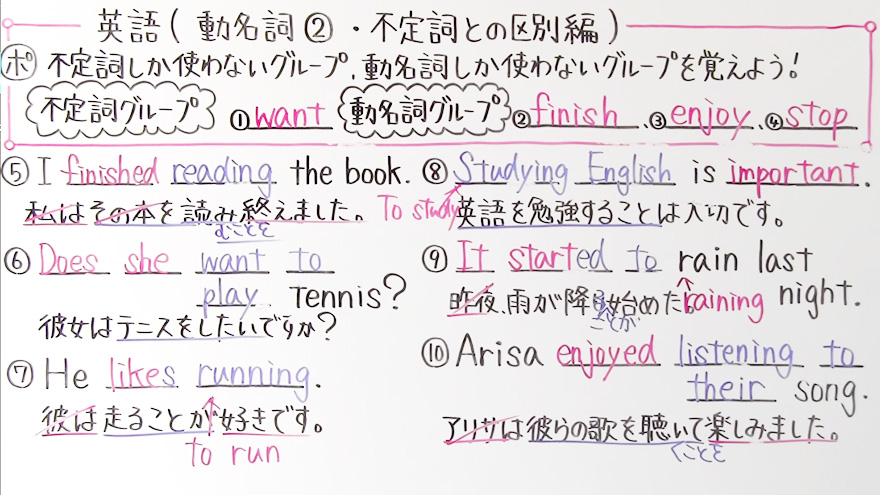 英語(動名詞②・不定詞との区別編)
ポ 不定詞しか使わないグループ,動名詞しか使わないグループを覚えよう!
不定詞グループ ①want 動名詞グループ ②finish ③enjoy ④stop
⑤ I finished reading the book.
私はその本を読み終えました。
むことを
⑥ Does she want to
play Tennis?
彼女はテニスをしたいですか?
⑦ He likes running.
彼は走ることが好きです。
to run
⑧ Studying English is important.
To study
英語を勉強することは大切です。
⑨ It started to rain last
raining night.
昨夜、雨が降り始めた。
ことが
⑩ Arisa enjoyed listening to
their song.
アリサは彼らの歌を聴いて楽しみました。
くことを